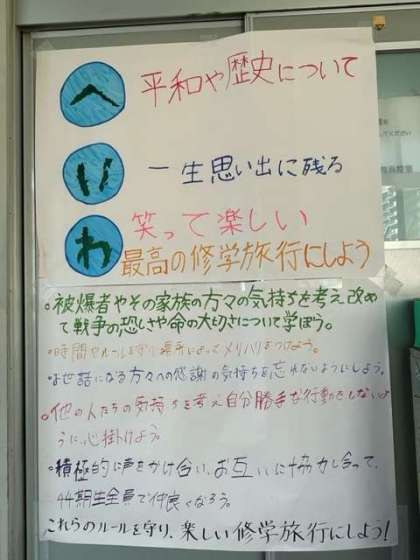 へ 平和や歴史について
い 一生思い出に残る
わ 笑って楽しい
最高の修学旅行にしよう
○被爆者やその家族の方々の気持ちを考え改め
て戦争の恐しさや命の大切さについて学ぼう。
○時間やルールを守り場所によってメリハリをつけよう。
○お世話になる方々への感謝の気持ちを忘れないようにしよう。
○他の人たちの気持ちを考え自分勝手な行動をしないよ
うに、心掛けよう。
○積極的に声をかけ合い、お互いに協力し合って、
44期生全員で仲良くなろう。
これらのルールを守り、楽しい修学旅行にしよう!